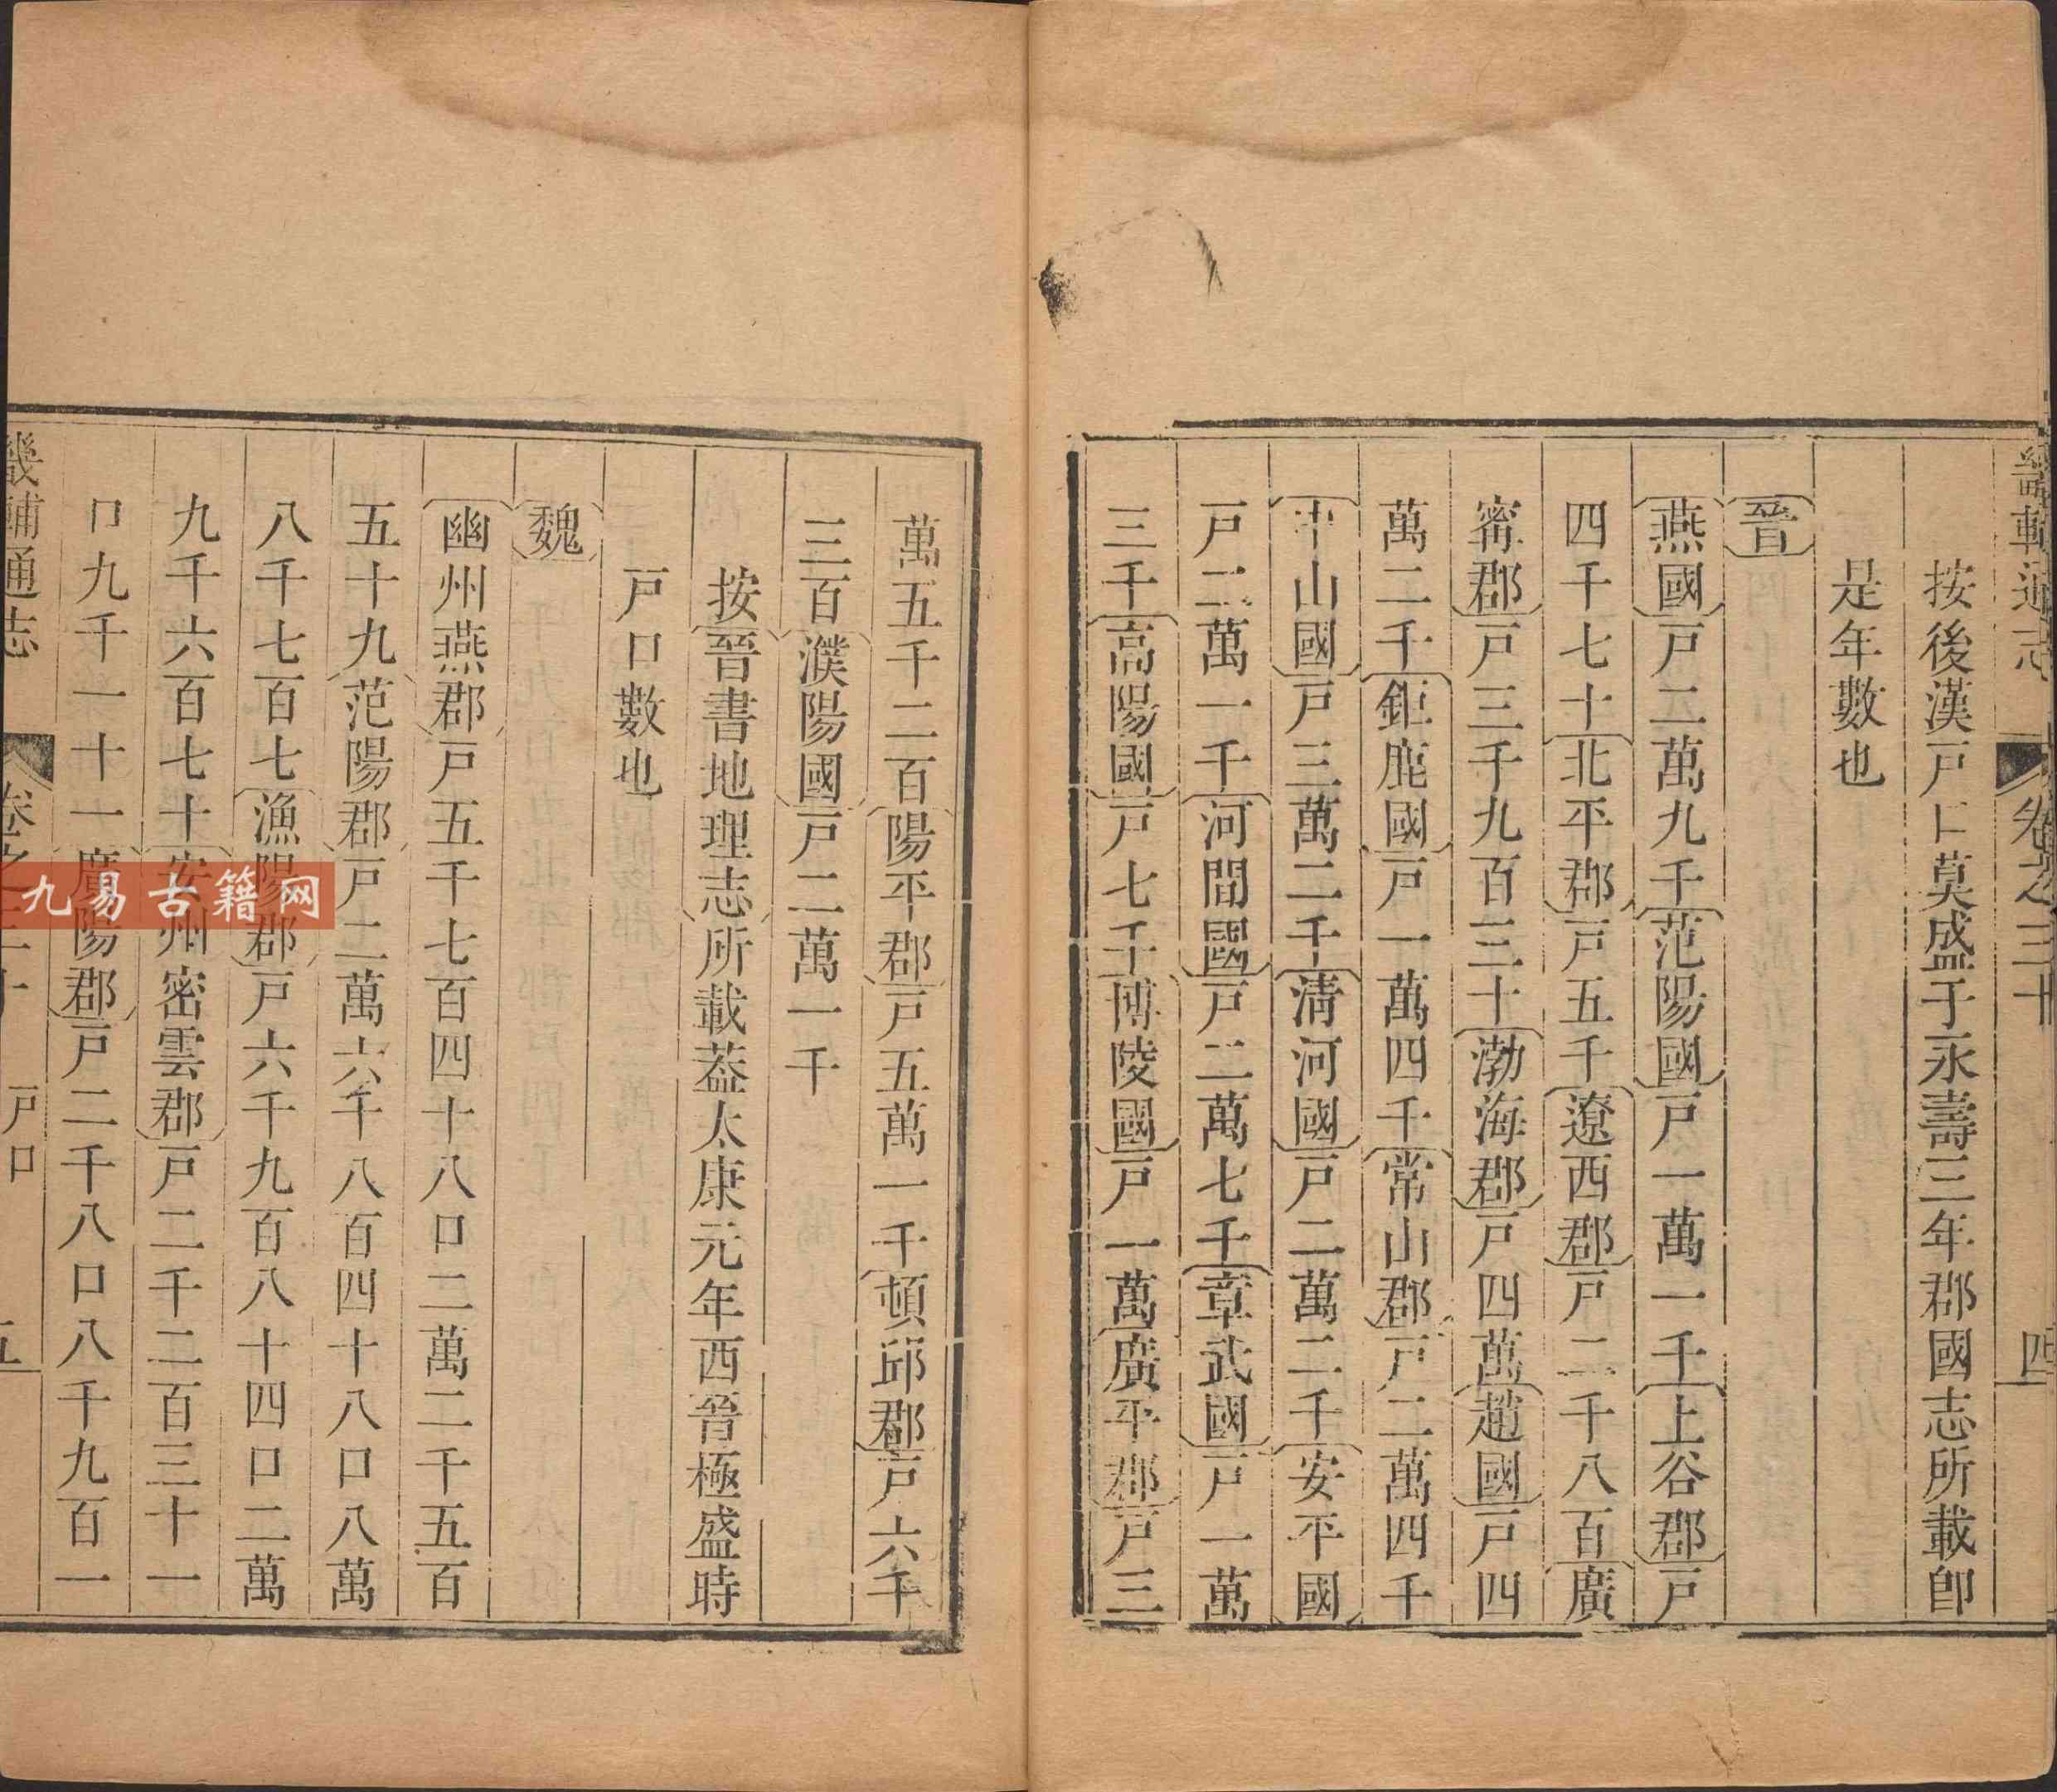 畿輔通志 卷之三十 四
按後漢戸口莫盛于永壽三年郡國志所載卽
是年數也
晉
燕國戸二萬九千范陽國戸一萬一千上谷郡戸
四千七十北平郡戸五千遼西郡戸二千八百廣
甯郡戸三千九百三十渤海郡戸四萬趙國戸四
萬二千鉅鹿國戸一萬四千常山郡戸二萬四千
中山國戸三萬二千清河國戸二萬二千安平國
戸二萬一千河間國戸二萬七千章武國戸一萬
三千高陽國戸七千博陵國戸一萬廣平郡戸三
萬五千二百陽平郡戸五萬一千頓邱郡戸六千
三百濮陽國戸二萬一千
按晉書地理志所載葢太康元年西晉極盛時
戸口數也
魏
幽州燕郡戸五千七百四十八口二萬二千五百
五十九范陽郡戸二萬六千八百四十八口八萬
八千七百七漁陽郡戸六千九百八十四口二萬
九千六百七十安州密雲郡戸二千二百三十一
口九千一十一廣陽郡戸二千八口八千九百一
畿輔通志 卷之三十 戸口 五
九易古籍网